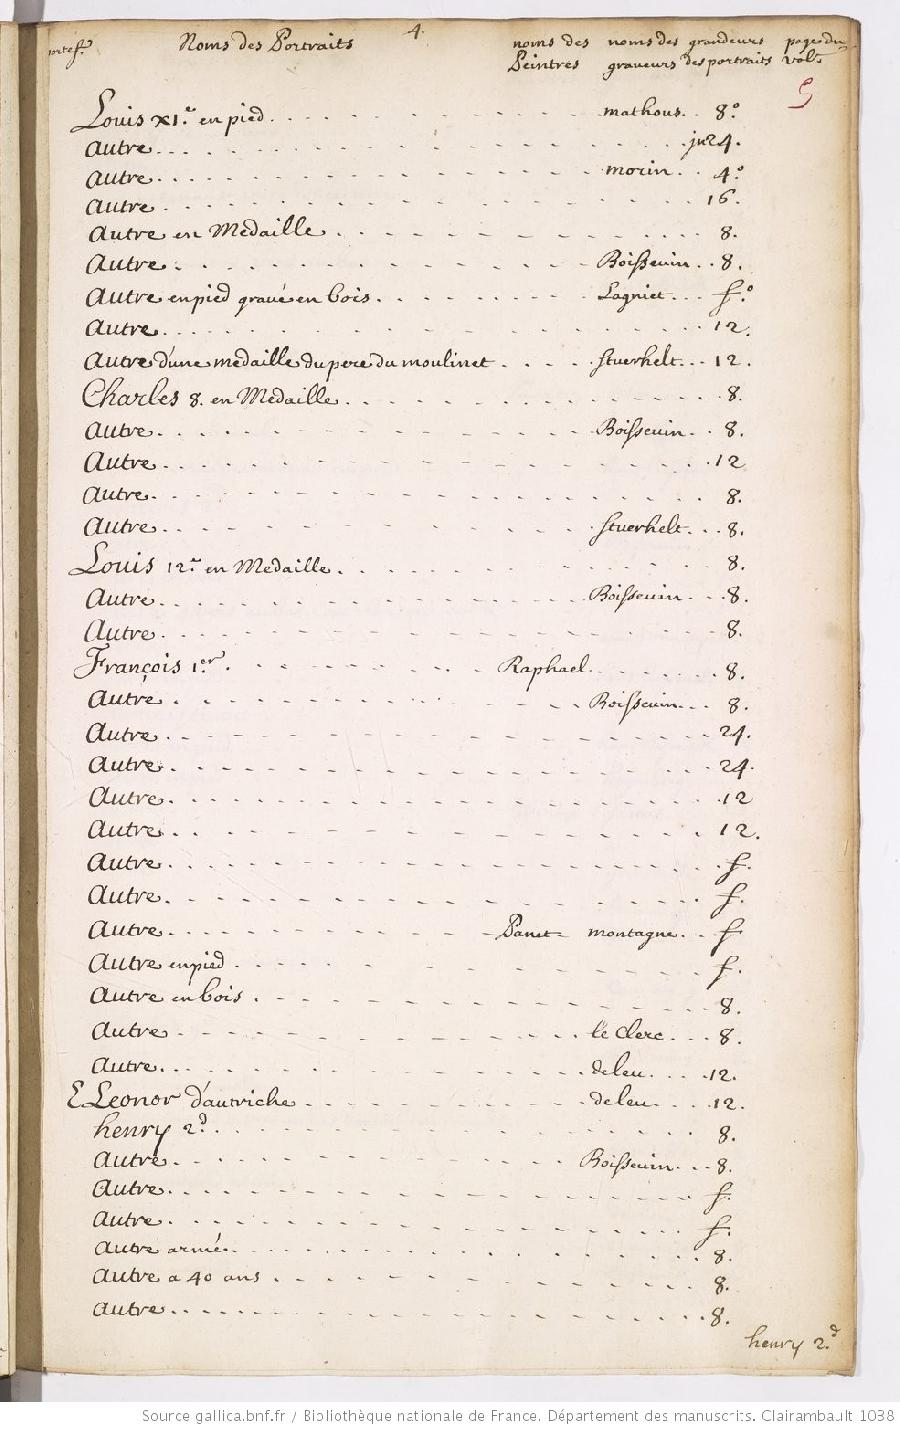 4.
portef. Noms des Portraits noms des Peintres noms des graveurs grandeurs des portraits page du vol.
5
Louis XI.e en pied mathous 8.o
Autre in 24.
Autre morin 4.o
Autre 16.
Autre en Medaille 8.
Autre Boissevin 8.
Autre en pied gravé en bois Lagniet f.o
Autre 12.
Autre d'une medaille du pere du moulinet Stuerhelt 12.
Charles 8. en Medaille 8.
Autre Boissevin 8.
Autre 12
Autre 8.
Autre Stuerhelt 8.
Louis 12.e en Medaille 8.
Autre Boissevin 8.
Autre 8.
François 1.er Raphael 8.
Autre Boissevin 8.
Autre 24.
Autre 24.
Autre 12
Autre 12.
Autre f.
Autre f.
Autre Panet montagne f
Autre en pied f.
Autre en bois 8.
Autre le Clerc 8.
Autre de leu 12.
E Leonor d'autriche de leu 12.
henry 2.d 8.
Autre Boissevin 8.
Autre f.
Autre f.
Autre armé 8.
Autre a 40 ans 8.
Autre 8.
henry 2.d
Source gallica.bnf.fr / Bibliothèque nationale de France. Département des manuscrits. Clairambault 1038